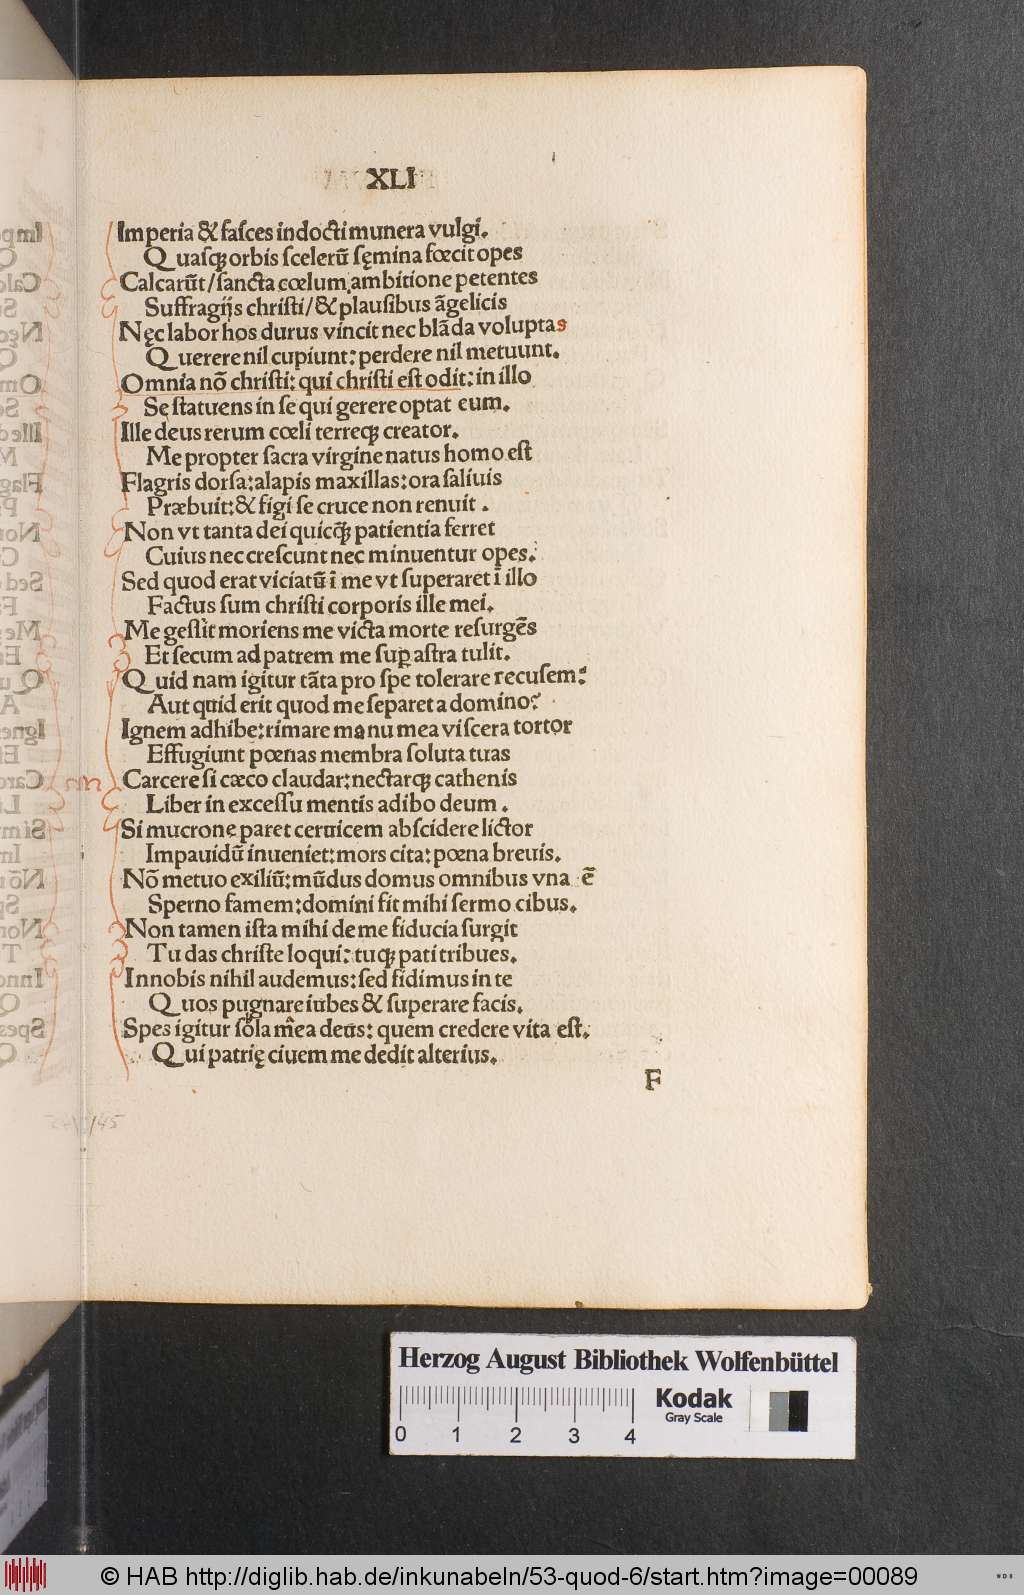 XLI
Imperia & faſces indocti munera vulgi.
Quaſqꝫ orbis ſcelerū ſęmina fœcit opes
Calcarūt/ſancta cœlum ambitione petentes
Suffragijs chriſti/& plauſibus āgelicis
Nęc labor hos durus vincit nec blāda voluptas
Querere nil cupiunt: perdere nil metuunt.
Omnia nō chriſti: qui chriſti eſt odit: in illo
Se ſtatuens in ſe qui gerere optat eum.
Ille deus rerum cœli terreqꝫ creator.
Me propter ſacra virgine natus homo eſt
Flagris dorſa: alapis maxillas: ora ſaliuis
Præbuit: & figi ſe cruce non renuit .
Non vt tanta dei quicqꝫ patientia ferret
Cuius nec creſcunt nec minuentur opes.
Sed quod erat viciatū ī me vt ſuperaret ī illo
Factus ſum chriſti corporis ille mei.
Me geſſit moriens me victa morte reſurgēs
Et ſecum ad patrem me ſuꝑ aſtra tulit.
Quid nam igitur tāta pro ſpe tolerare recuſem?
Aut quid erit quod me ſeparet a domino?
Ignem adhibe: rimare manu mea viſcera tortor
Effugiunt pœnas membra ſoluta tuas
Carcere ſi cæco claudar: nectarqꝫ cathenis
Liber in exceſſu mentis adibo deum .
Si mucrone paret ceruicem abſcidere lictor
Impauidū inueniet: mors cita: pœna breuis.
Nō metuo exiliū: mūdus domus omnibus vna ē
Sperno famem: domini fit mihi ſermo cibus.
Non tamen iſta mihi de me fiducia ſurgit
Tu das chriſte loqui: tuqꝫ pati tribues.
Innobis nihil audemus: ſed fidimus in te
Quos pugnare iubes & ſuperare facis.
Spes igitur ſola mea deus: quem credere vita eſt.
Qui patrię ciuem me dedit alterius.
F
Herzog August Bibliothek Wolfenbüttel
Kodak
Gray Scale
0 1 2 3 4
© HAB http://diglib.hab.de/inkunabeln/53-quod-6/start.htm?image=00089